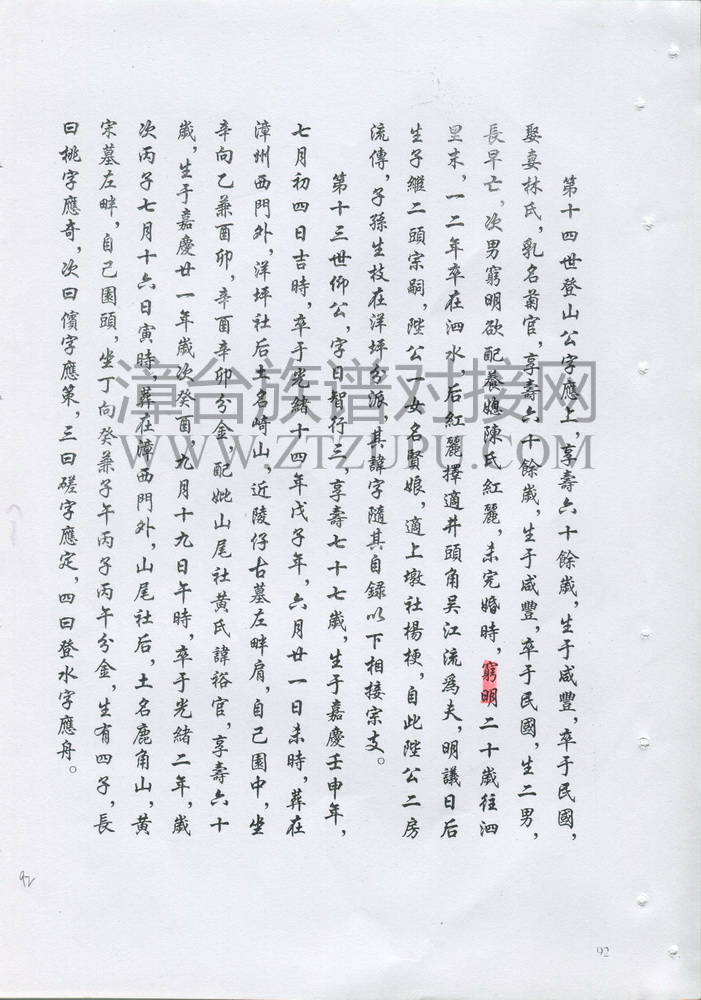 第十四世登山公字應上，享壽六十餘歲，生于咸豐，卒于民國，
娶妻林氏，乳名菊官，享壽六十餘歲，生于咸豐，卒于民國，生二男，
長早亡，次男窮明欲配養媳陳氏紅麗，未完婚時，窮明二十歲往泗
里末，一二年卒在泗水，后紅麗擇適井頭角吳江流為夫，明議日后
生子繼二頭宗嗣，陞公一女名賢娘，適上墩社楊梗，自此陞公二房
流傳，子孫生枝在洋坪分派，其諱字隨其自錄以下相接宗支。
第十三世仰公，字曰智行三，享壽七十七歲，生于嘉慶壬申年，
七月初四日吉時，卒于光緒十四年戊子年，六月廿一日未時，葬在
漳州西門外，洋坪社后土名崎山，近陵仔古墓左畔肩，自己園中，坐
辛向乙兼酉卯，辛酉辛卯分金，配妣山尾社黃氏諱裕官，享壽六十
歲，生于嘉慶廿一年歲次癸酉，九月十九日午時，卒于光緒二年，歲
次丙子七月十六日寅時，葬在漳西門外，山尾社后，土名鹿角山，黃
宋墓左畔，自己園頭，坐丁向癸兼子午丙子丙午分金，生有四子，長
曰桃字應奇，次曰儐字應策，三曰磋字應定，四曰登水字應舟。
漳台族谱对接网
WWW.ZTZUPU.COM
92
92